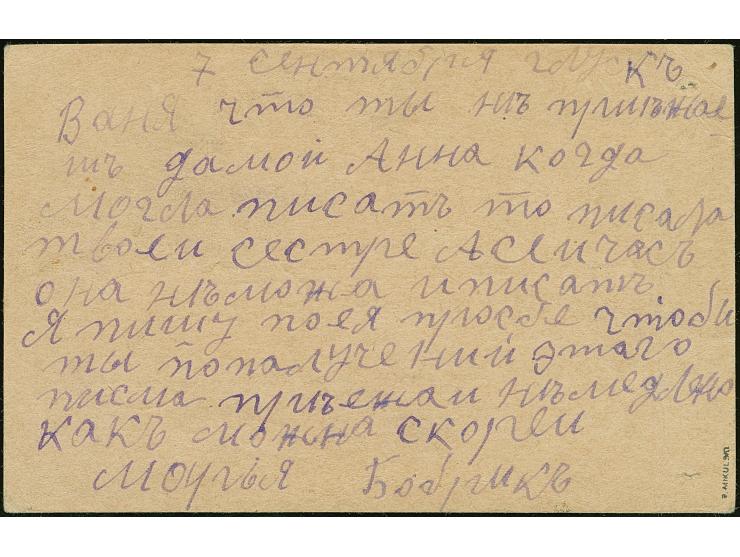 7 сентября
Ваня что ты нъ приъжае
тъ дамой Анна когда
могла писать то писала
твоей сестре Асеичасъ
она нъможа иписать
Я пишу поея просбе чтоби
ты пополучений этаго
писма приъежаи нъмедлено
какъ можна скореи
Бобрикъ